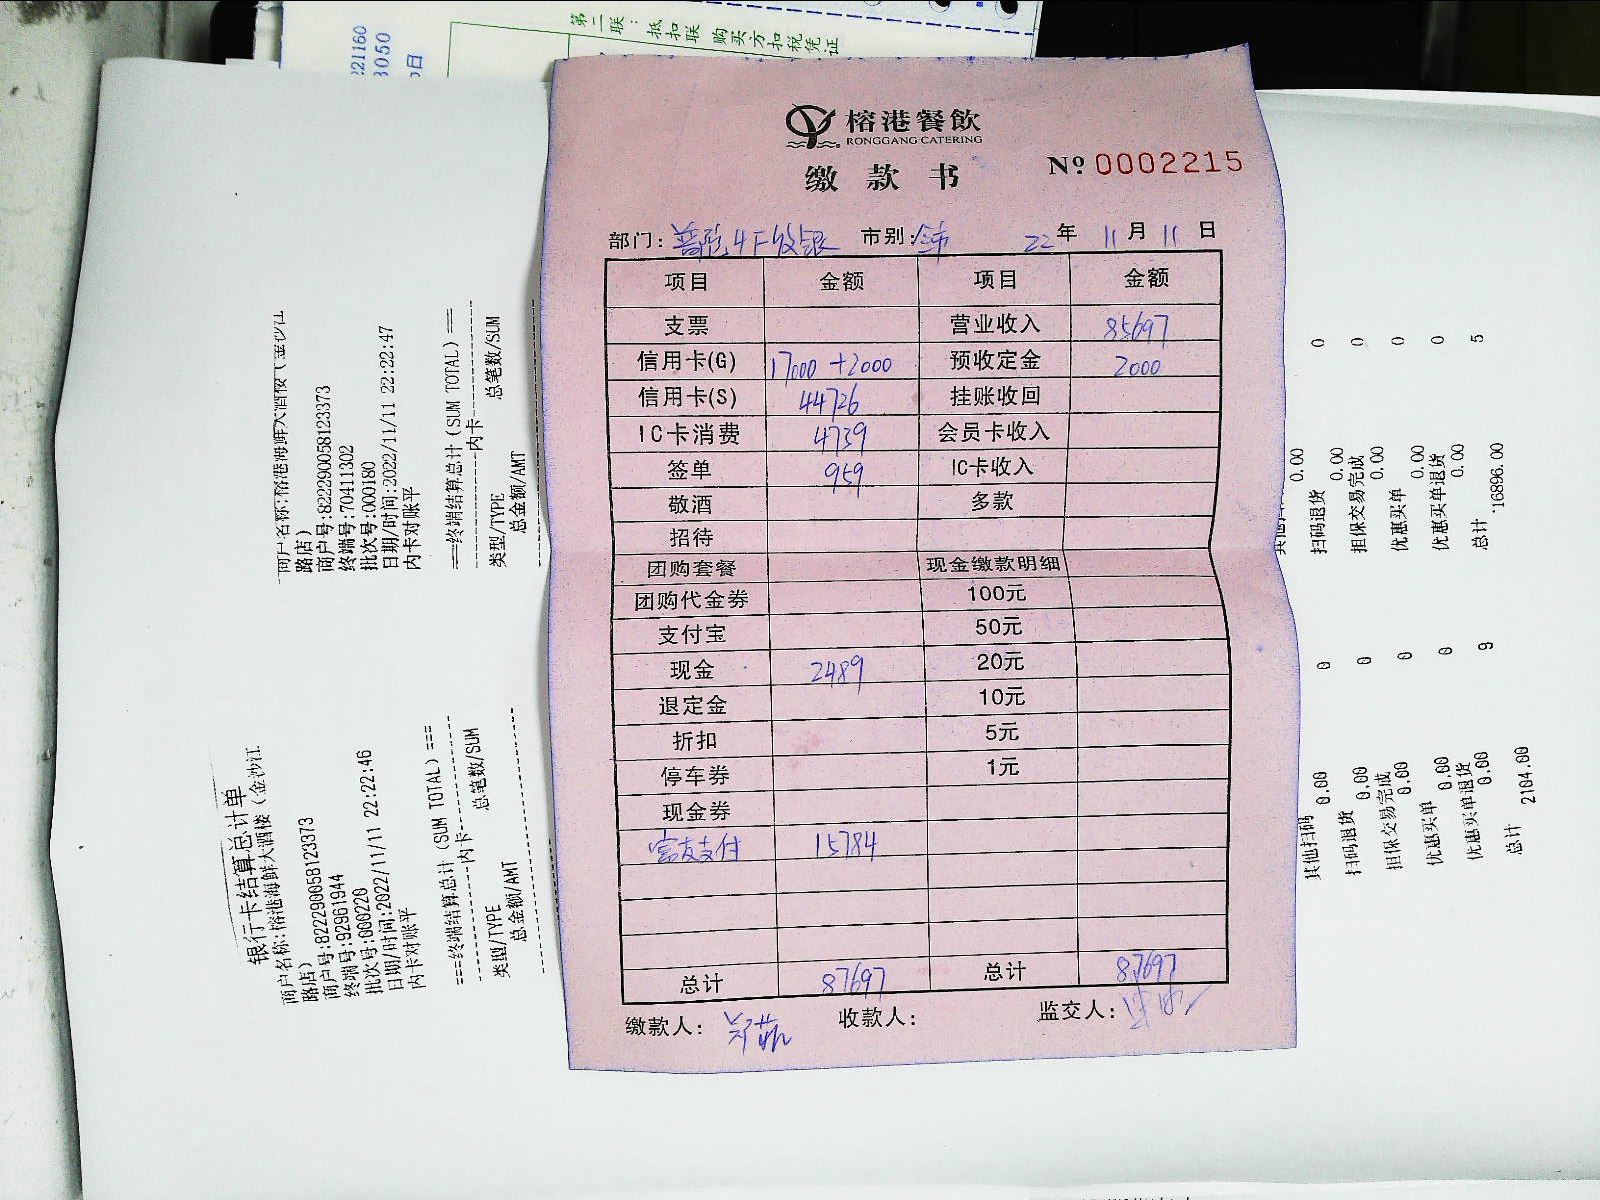 第二联：抵扣联 购买方扣税凭证
221160
3050
日
榕港餐飲
RONGGANG CATERING
缴款书
Nº 0002215
部门：普陀4F收银 市别: 22年 11月 11日
项目 金额 项目 金额
支票 营业收入 85697
信用卡(G) 17000+2000 预收定金 2000
信用卡(S) 44726 挂账收回
IC卡消费 4739 会员卡收入
签单 959 IC卡收入
敬酒 多款
招待
团购套餐 现金缴款明细
团购代金券 100元
支付宝 50元
现金 2489 20元
退定金 10元
折扣 5元
停车券 1元
现金券
富友支付 15784
总计 87697 总计 87697
缴款人： 收款人： 监交人：
商户名称:榕港海鲜大酒楼（金沙江
路店）
商户号:822290058123373
终端号:70411302
批次号:000180
日期/时间:2022/11/11 22:22:47
内卡对账平
===终端结算总计(SUM TOTAL)===
内卡
类型/TYPE 总笔数/SUM
总金额/AMT
0
0.00
扫码退货 0
0.00
担保交易完成 0
0.00
优惠买单 0
0.00
优惠买单退货
0.00
总计 5
16896.00
银行卡结算总计单
商户名称:榕港海鲜大酒楼（金沙江
路店）
商户号:822290058123373
终端号:92961944
批次号:000220
日期/时间:2022/11/11 22:22:46
内卡对账平
===终端结算总计(SUM TOTAL)===
内卡
类型/TYPE 总笔数/SUM
总金额/AMT
其他扫码 0
0.00
扫码退货 0
0.00
担保交易完成 0
0.00
优惠买单 0
0.00
优惠买单退货
0.00
总计 9
2104.00